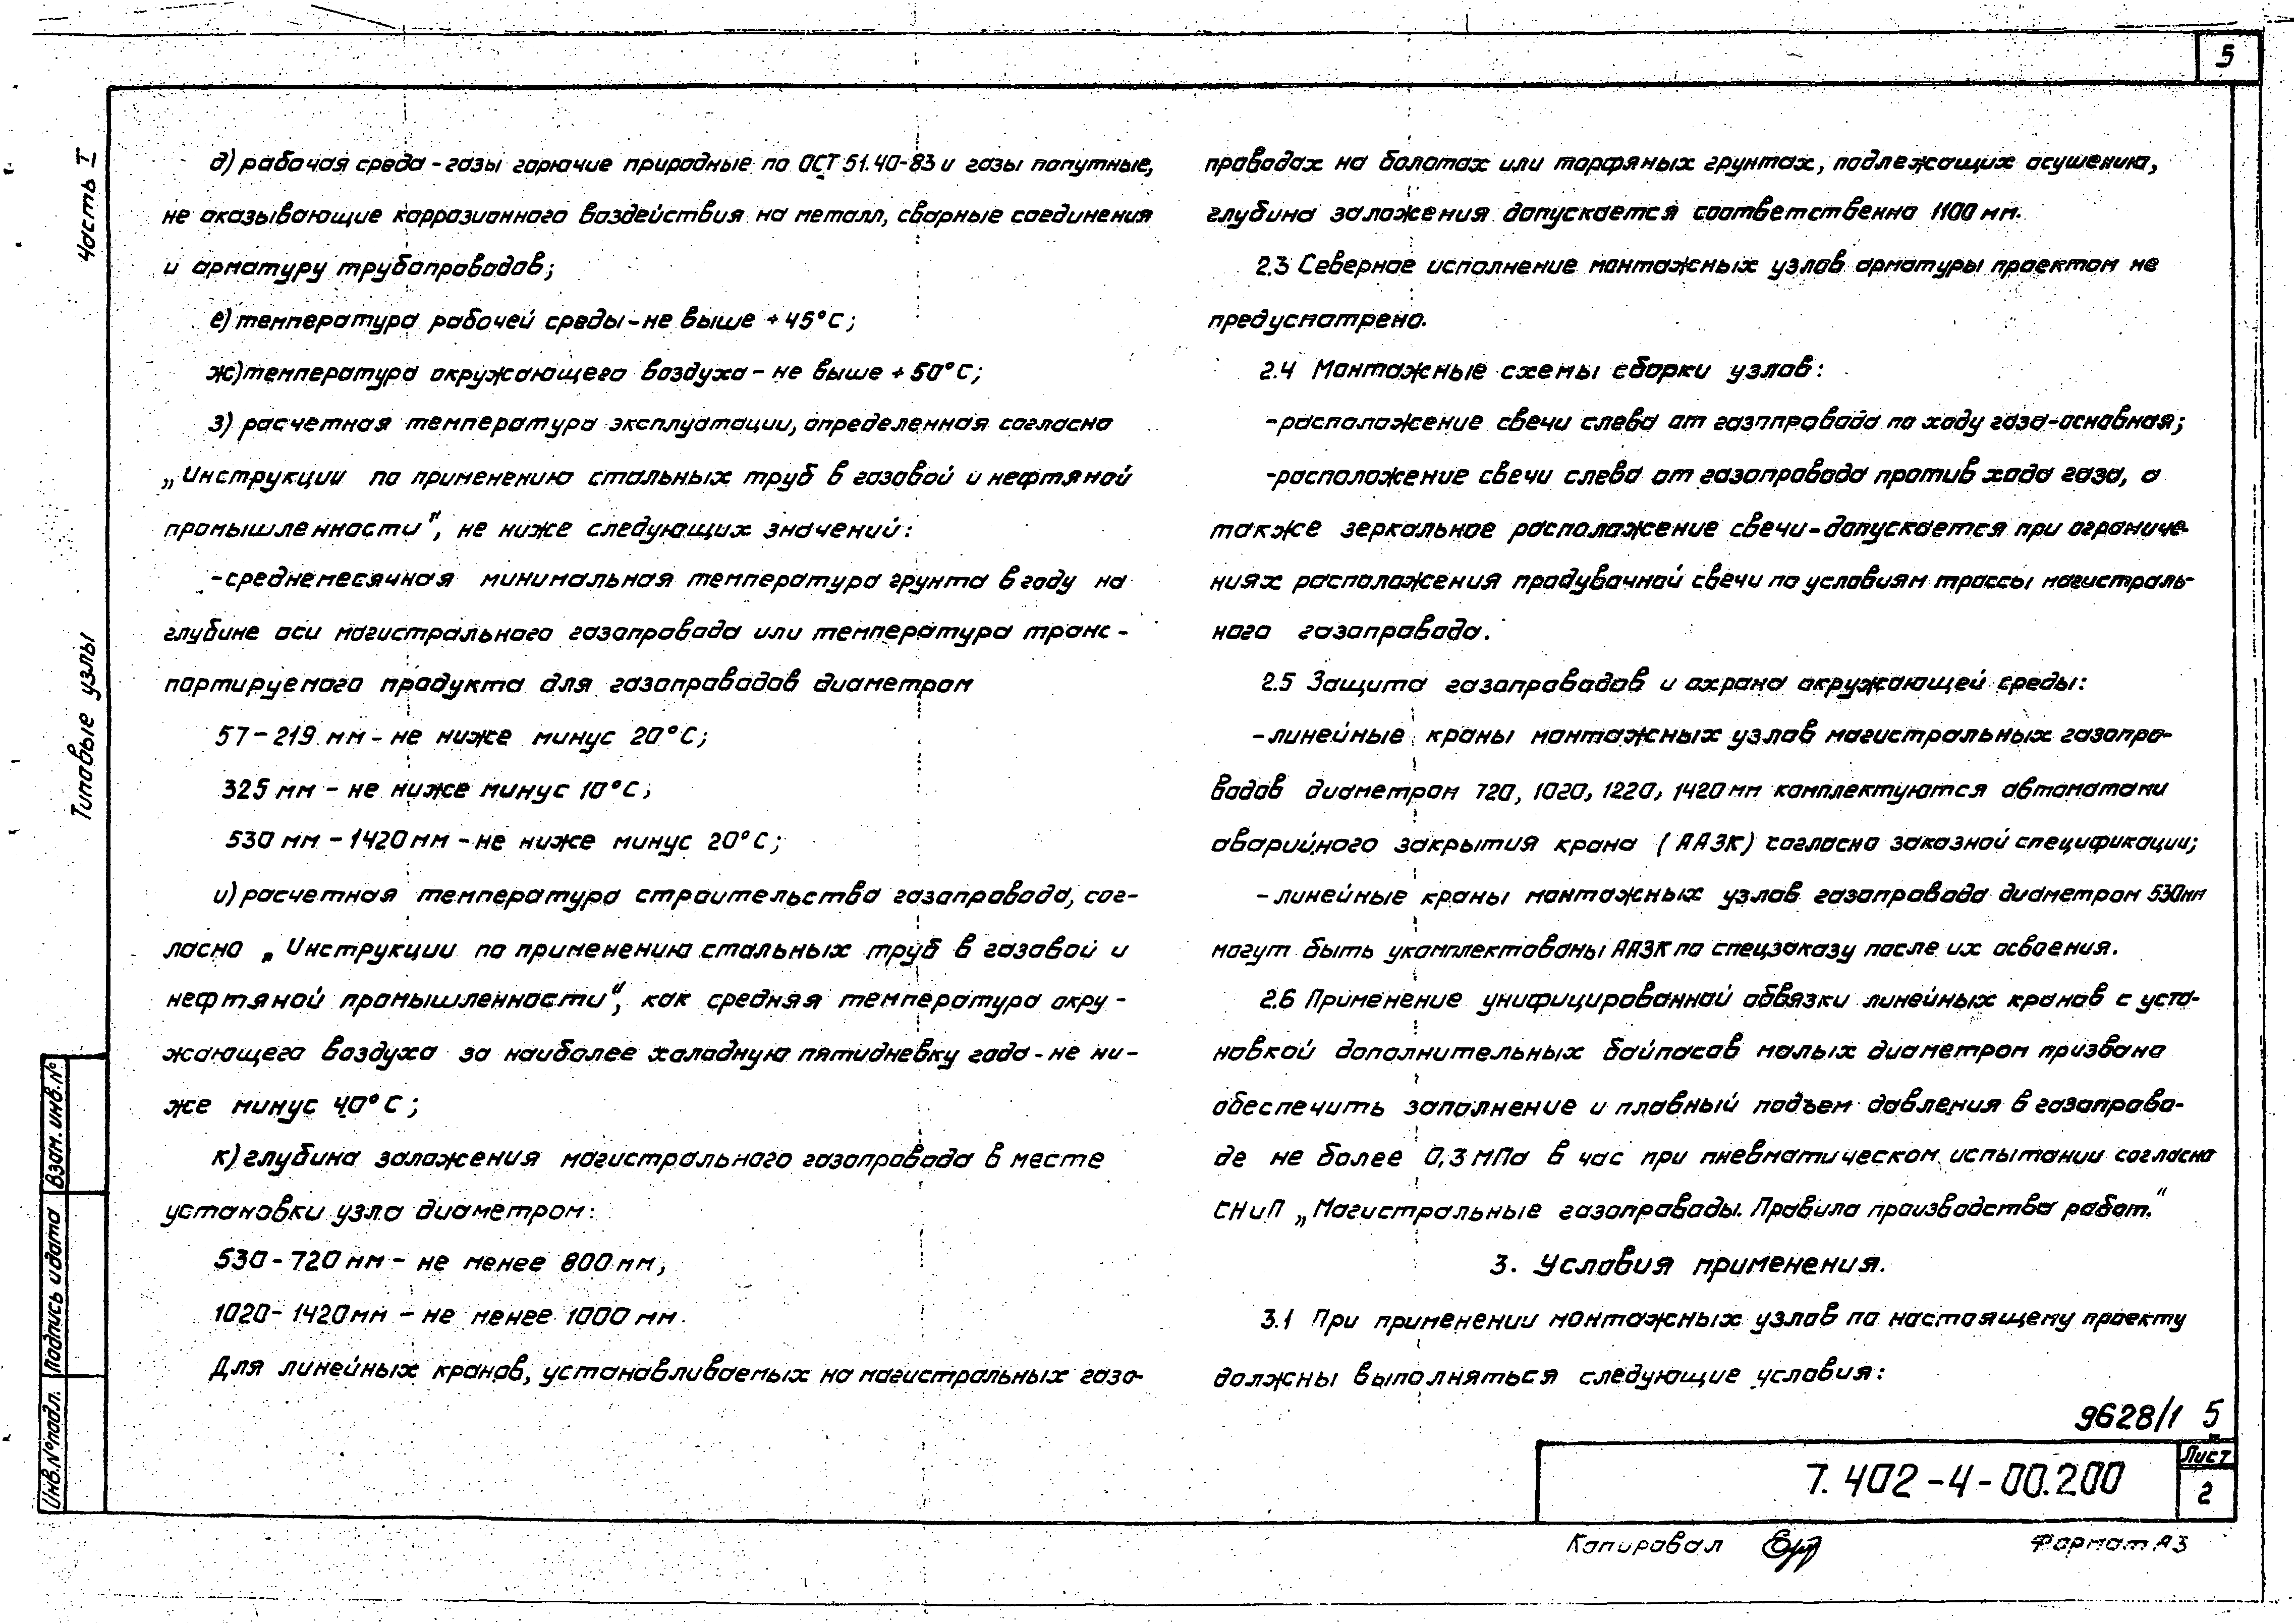 5
Часть I
Типовые узлы
д) рабочая среда - газы горючие природные по ОСТ 51.40-83 и газы попутные,
не оказывающие коррозионного воздействия на металл, сварные соединения
и арматуру трубопроводов;
е) температура рабочей среды - не выше +45°С;
ж) температура окружающего воздуха - не выше +50°С;
з) расчетная температура эксплуатации, определенная согласно
„Инструкции по применению стальных труб в газовой и нефтяной
промышленности", не ниже следующих значений:
- среднемесячная минимальная температура грунта в году на
глубине оси магистрального газопровода или температура транс-
портируемого продукта для газопроводов диаметром
57-219 мм - не ниже минус 20°С;
325 мм - не ниже минус 10°С;
530 мм - 1420 мм - не ниже минус 20°С;
и) расчетная температура строительства газопровода, сог-
ласно „Инструкции по применению стальных труб в газовой и
нефтяной промышленности", как средняя температура окру-
жающего воздуха за наиболее холодную пятидневку года - не ни-
же минус 40°С;
к) глубина заложения магистрального газопровода в месте
установки узла диаметром:
530-720 мм - не менее 800 мм;
1020-1420 мм - не менее 1000 мм.
Для линейных кранов, устанавливаемых на магистральных газо-
проводах на болотах или торфяных грунтах, подлежащих осушению,
глубина заложения допускается соответственно 1100 мм.
2.3 Северное исполнение монтажных узлов арматуры проектом не
предусмотрено.
2.4 Монтажные схемы сборки узлов:
- расположение свечи слева от газопровода по ходу газа - основная;
- расположение свечи слева от газопровода против хода газа, а
также зеркальное расположение свечи - допускается при ограниче-
ниях расположения продувочной свечи по условиям трассы магистраль-
ного газопровода.
2.5 Защита газопроводов и охрана окружающей среды:
- линейные краны монтажных узлов магистральных газопро-
водов диаметром 720, 1020, 1220, 1420 мм комплектуются автоматами
аварийного закрытия крана (ААЗК) согласно заказной спецификации;
- линейные краны монтажных узлов газопровода диаметром 530мм
могут быть укомплектованы ААЗК по спецзаказу после их освоения.
2.6 Применение унифицированной обвязки линейных кранов с уста-
новкой дополнительных байпасов малых диаметром призвана
обеспечить заполнение и плавный подъем давления в газопрово-
де не более 0,3 МПа в час при пневматическом испытании согласно
СНиП „Магистральные газопроводы. Правила производства работ."
3. Условия применения.
3.1 При применении монтажных узлов по настоящему проекту
должны выполняться следующие условия:
9628/1 5
7.402-4-00.200
Лист
2
Взам. инв. №
Подпись и дата
Инв. № подл.
Копировал
Формат А3